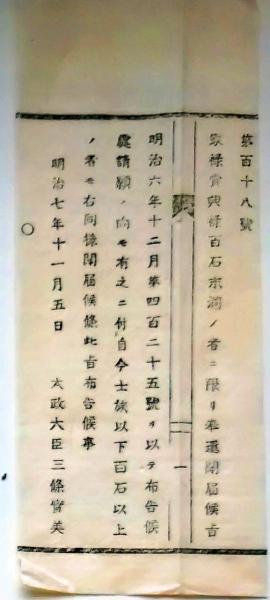 第百十八號
家祿賞典祿百石未滿ノ者ニ限リ奉還聞届候旨
明治六年十二月第四百二十五號ヲ以テ布告候
處請願ノ向モ有之ニ付自今士族以下百石以上
ノ者モ右同樣聞届候條此旨布告候事
明治七年十一月五日 太政大臣三條實美
一